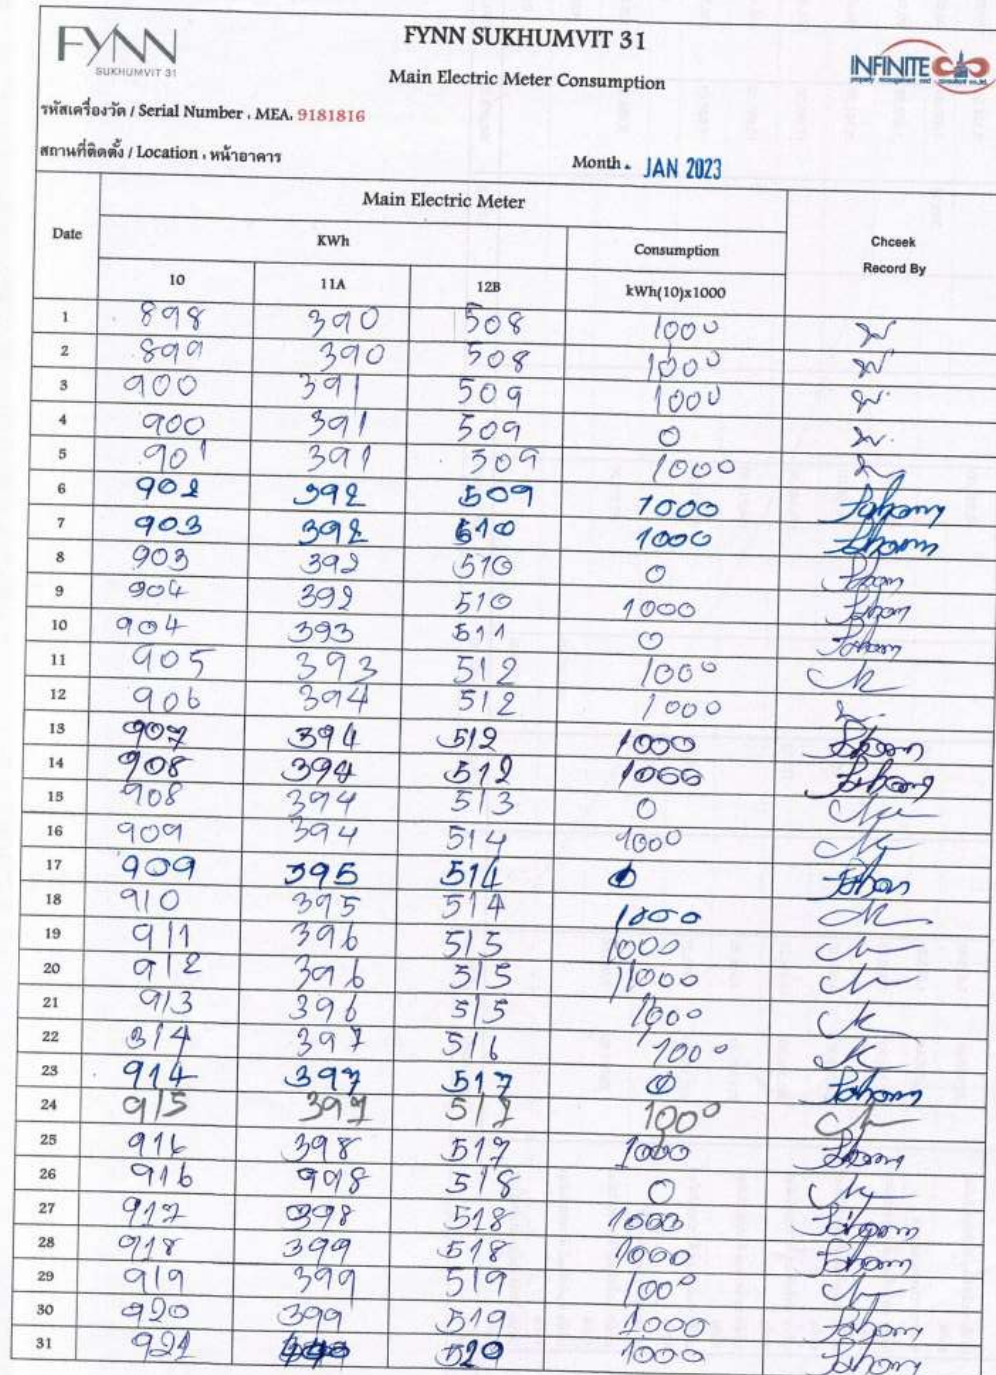 FYNN
SUKHUMVIT 31
FYNN SUKHUMVIT 31
Main Electric Meter Consumption
INFINITE
property management and consultant co.,ltd.
รหัสเครื่องวัด / Serial Number . MEA. 9181816
สถานที่ติดตั้ง / Location . หน้าอาคาร
Month. JAN 2023
Main Electric Meter
Date
KWh
Consumption
Chceek
Record By
10 11A 12B kWh(10)x1000
1 898 390 508 1000
2 899 390 508 1000
3 900 391 509 1000
4 900 391 509 0
5 901 391 509 1000
6 902 392 509 1000
7 903 392 510 1000
8 903 392 510 0
9 904 392 510 1000
10 904 393 511 0
11 905 393 512 1000
12 906 394 512 1000
13 907 394 512 1000
14 908 394 512 1000
15 908 394 513 0
16 909 394 514 1000
17 909 395 514 0
18 910 395 514 1000
19 911 396 515 1000
20 912 396 515 1000
21 913 396 515 1000
22 314 397 516 1000
23 914 397 517 0
24 915 397 517 1000
25 916 398 517 1000
26 916 998 518 0
27 917 398 518 1000
28 918 399 518 1000
29 919 399 519 1000
30 920 399 519 1000
31 921 520 1000